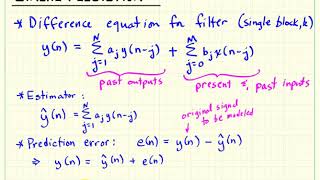 * Difference equation for filter (single block, k)
y(n) = N Σ j=1 a_j y(n-j) + M Σ j=0 b_j x(n-j)
past outputs present & past inputs
* Estimator:
ŷ(n) = N Σ j=1 a_j y(n-j)
original signal
to be modeled
* Prediction error: e(n) = y(n) - ŷ(n)
⇒ y(n) = ŷ(n) + e(n)